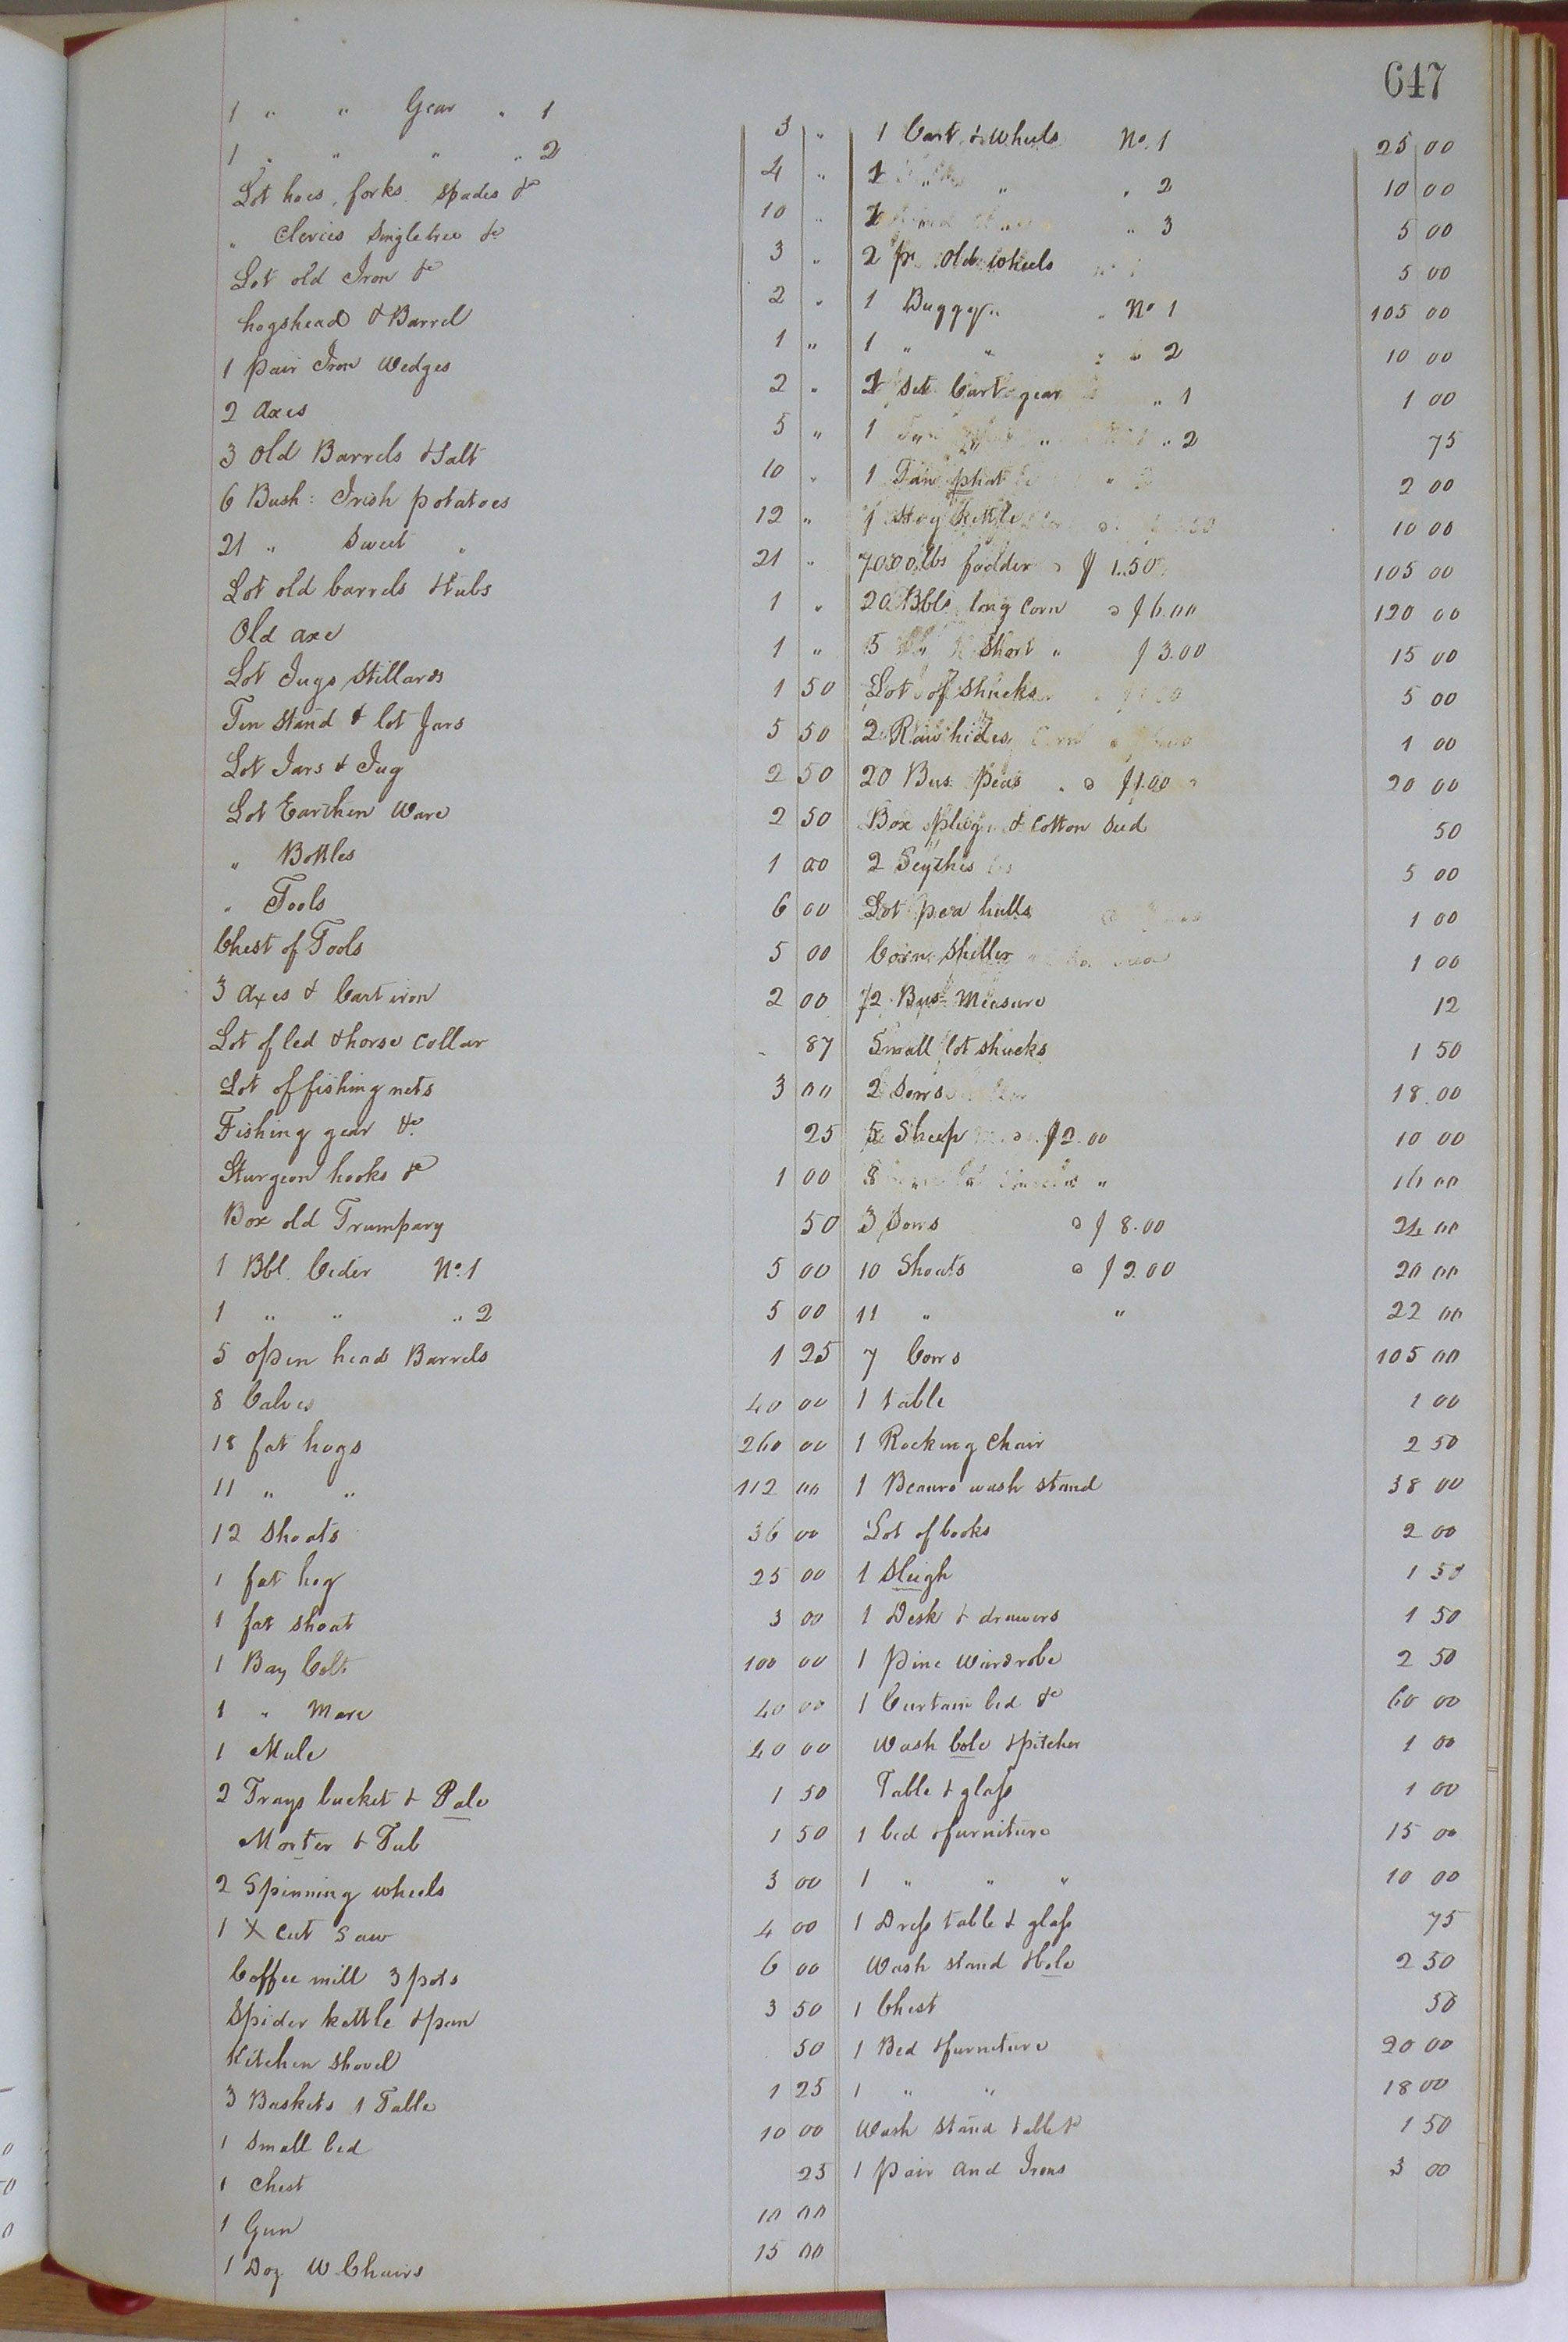 647
1 " " Gear " 1 3 "
1 " " " " 2 4 "
Lot hoes, forks. Spades &c 10 "
" Clevices Singletree &c 3 "
Lot old Iron &c 2 "
hogshead & Barrel 1 "
1 pair Iron Wedges 2 "
2 axes 5 "
3 Old Barrels & Salt 10 "
6 Bush: Irish potatoes 12 "
21 " Sweet " 21 "
Lot old barrels & tubs 1 "
Old axe 1 "
Lot Jugs Stillards 1 50
Tin Stand & lot Jars 5 50
Lot Jars & Jug 2 50
Lot Earthen Ware 2 50
" Bottles 1 00
" Tools 6 00
Chest of Tools 5 00
3 Axes & Cart iron 2 00
Lot of led & horse Collar 87
Lot of fishing nets 3 00
Fishing gear &c 25
Sturgeon hooks &c 1 00
Box old Trumpary 50
1 Bbl. Cider No. 1 5 00
1 " " " 2 5 00
5 open head Barrels 1 25
8 Calves 40 00
18 fat hogs 260 00
11 " " 112 00
12 Shoats 36 00
1 fat hog 25 00
1 fat shoat 3 00
1 Bay Colt 100 00
1 " Mare 40 00
1 Mule 40 00
2 Trays bucket & Pale 1 50
Morter & Tub 1 50
2 Spinning wheels 3 00
1 X Cut Saw 4 00
Coffee mill 3 pots 6 00
Spider kettle & pan 3 50
Kitchen Shovel 50
3 Baskets 1 Table 1 25
1 Small bed 10 00
1 Chest 25
1 Gun 10 00
1 Doz W Chairs 15 00
1 Cart & Wheels No. 1 25 00
1 " " " 2 10 00
" 3 5 00
2 pr Old Wheels 5 00
1 Buggy No 1 105 00
1 " " " " 2 10 00
1 Set Cart gear " 1 1 00
1 " " 2 75
1 Tan phat 2 00
1 Hog Kettle 10 00
7000 lbs fodder @ $ 1.50 105 00
20 Bbls long Corn @ $ 6.00 120 00
5 " Short " $ 3.00 15 00
Lot of Shucks 5 00
2 Raw hides 1 00
20 Bus Peas @ $1.00 20 00
Box plug & Cotton Seed 50
2 Scythes 5 00
Lot pea hulls 1 00
Corn Sheller 1 00
1/2 Bus Measure 12
Small lot shucks 1 50
2 Sows 18 00
5 Sheep @ $2.00 10 00
8 " " 16 00
3 Sows @ $ 8.00 24 00
10 Shoats @ $ 2.00 20 00
11 " " 22 00
7 Cows 105 00
1 table 1 00
1 Rocking Chair 2 50
1 Beauro wash stand 38 00
Lot of books 2 00
1 Sleigh 1 50
1 Desk & drawers 1 50
1 Pine Wardrobe 2 50
1 Curtain bed &c 60 00
Wash bole & pitcher 1 00
Table & glass 1 00
1 bed & furniture 15 00
1 " " " 10 00
1 Dress table & glass 75
Wash stand & bole 2 50
1 Chest 50
1 Bed & furniture 20 00
1 " " 18 00
Wash stand table &c 1 50
1 pair and Irons 3 00